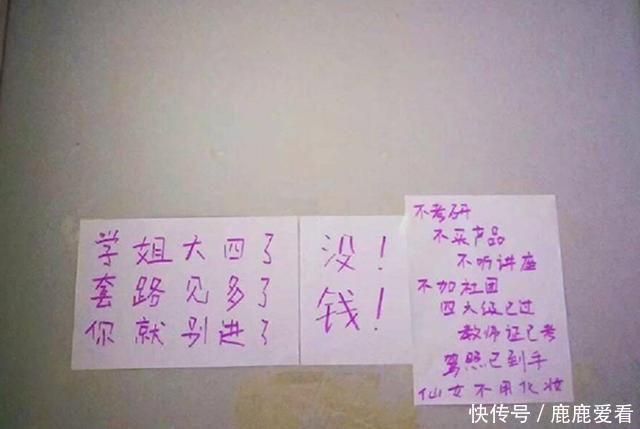 学姐大四了
套路见多了
你就别进了
没！
钱！
不考研
不买产品
不听讲座
不加社团
四六级已过
教师证已考
驾照已到手
仙女不用化妆
快传号／鹿鹿爱看